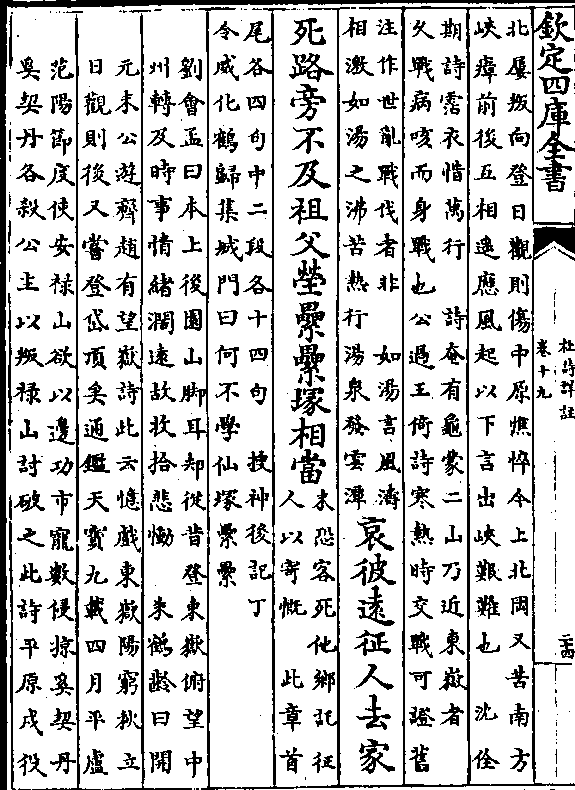 欽定四庫全書
杜詩詳註
卷十九
二十四
北屢叛向登日觀則傷中原憔悴今上北岡又苦南方
峽瘴前後互相遙應風起以下言出峽艱難也　沈佺
期詩露衣惜萬行　詩奄有龜蒙二山乃近東嶽者
久戰病咳而身戰也公過王倚詩寒熱時交戰可證舊
注作世亂戰伐者非　如湯言風濤
相激如湯之沸苦熱行湯泉發雲潭
哀彼遠征人去家
死路旁不及祖父塋纍纍塚相當
末恐客死他鄉託征
人以寄慨　此章首
尾各四句中二段各十四句　搜神後記丁
令威化鶴歸集城門曰何不學仙塚纍纍
劉會孟曰本上後園山脚耳却從昔登東嶽俯望中
州轉及時事情緒濶遠故收拾悲慟　朱鶴齡曰開
元末公遊齊趙有望嶽詩此云憶戲東嶽陽窮秋立
日觀則後又嘗登岱頂矣通鑑天寶九載四月平盧
范陽節度使安禄山欲以邊功市寵數侵掠奚契丹
奚契丹各殺公主以叛禄山討破之此詩平原戍役